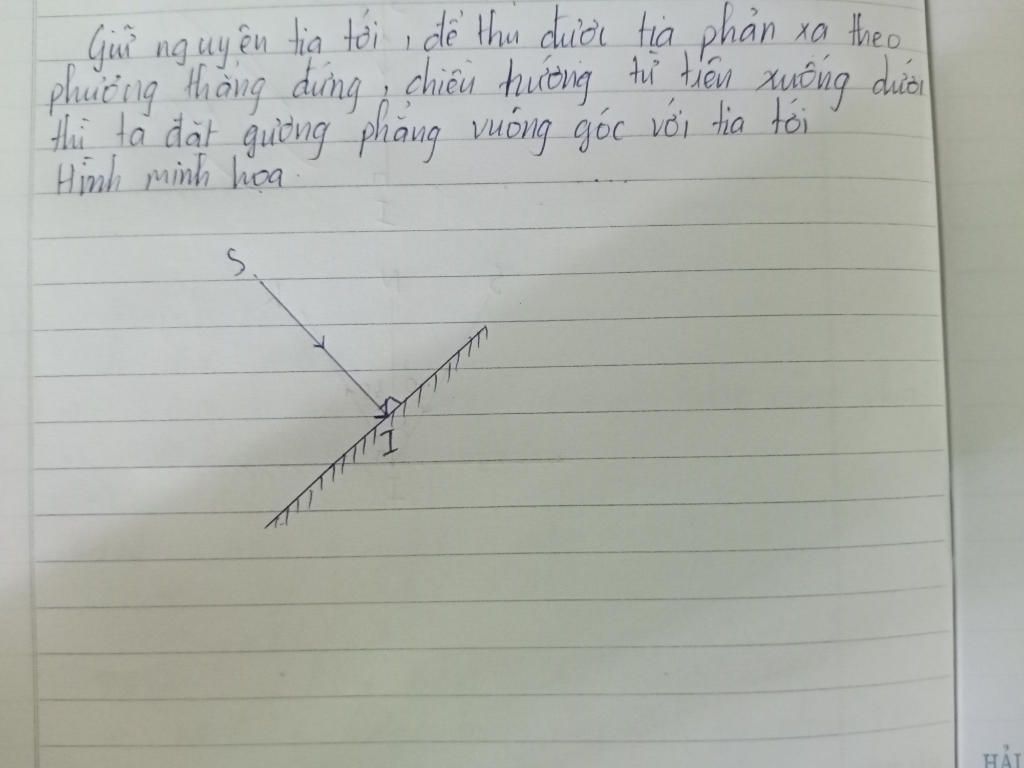 Giữ nguyên tia tới, để thu được tia phản xạ theo
phương thẳng đứng, chiều hướng từ trên xuống dưới
thì ta đặt gương phẳng vuông góc với tia tới
Hình minh họa.
S
I
HẢI